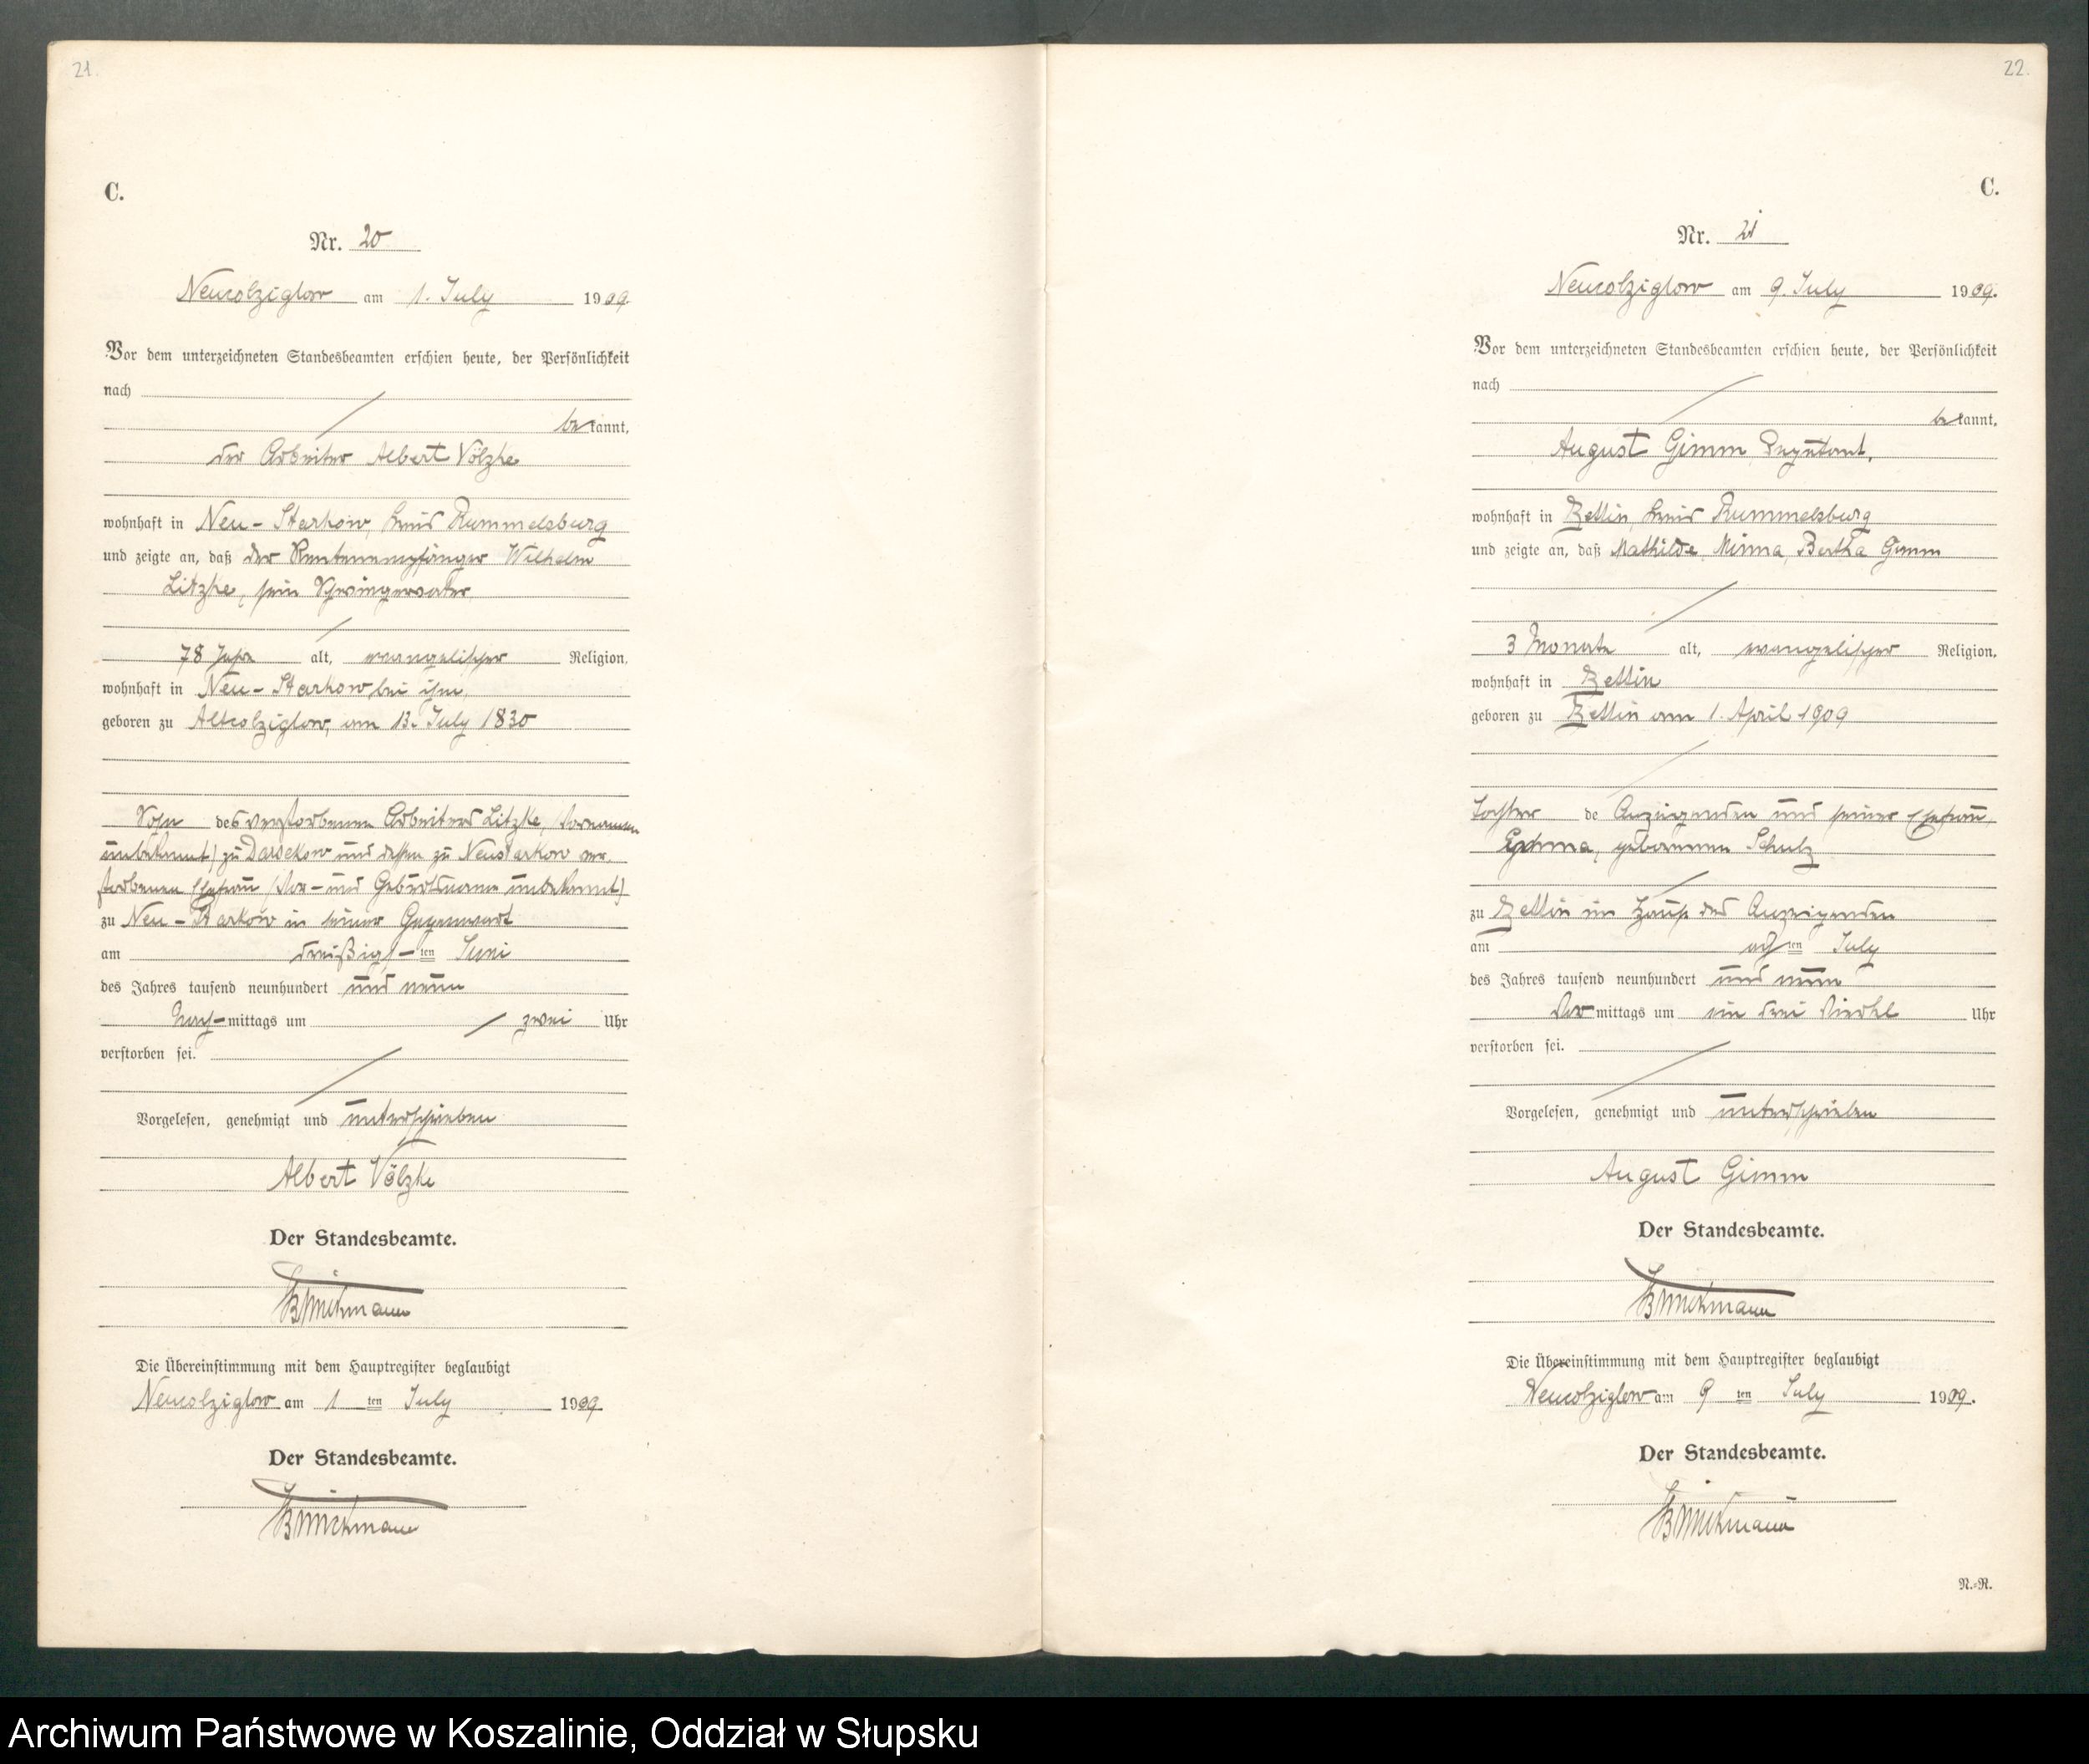 21.
C.
Nr. 20
Neucolziglow am 1. July 1909
Vor dem unterzeichneten Standesbeamten erschien heute, der Persönlichkeit
nach
bekannt,
der Arbeiter Albert Völzke
wohnhaft in Neu-Starkow, Kreis Rummelsburg
und zeigte an, daß der Rentenempfänger Wilhelm
Litzke, sein Schwiegervater,
78 Jahre alt, evangelischer Religion,
wohnhaft in Neu-Starkow bei ihm,
geboren zu Altcolziglow, am 13. July 1830
Sohn des verstorbenen Arbeiters Litzke, (Vornamen
unbekannt) zu Darsekow und dessen zu Neustarkow ver-
storbenen Ehefrau (Vor- und Geburtsname unbekannt)
zu Neu-Starkow in seiner Gegenwart
am dreißigsten Juni
des Jahres tausend neunhundert und neun
Nachmittags um zwei Uhr
verstorben sei.
Vorgelesen, genehmigt und unterschrieben
Albert Völzke
Der Standesbeamte.
Die Übereinstimmung mit dem Hauptregister beglaubigt
Neucolziglow am 1 ten July 1909.
Der Standesbeamte.
22.
C.
Nr. 21
Neucolziglow am 9. July 1909.
Vor dem unterzeichneten Standesbeamten erschien heute, der Persönlichkeit
nach
bekannt,
August Gimm
wohnhaft in Zettin, Kreis Rummelsburg
und zeigte an, daß Mathilde, Minna, Bertha Gimm
3 Monate alt, evangelischer Religion,
wohnhaft in Zettin
geboren zu Zettin am 1. April 1909
Tochter de Anzeigenden und seiner Ehefrau,
geborenen Schulz
zu Zettin im Hause des Anzeigenden
am achten July
des Jahres tausend neunhundert und neun
Vormittags um ein drei Viertel Uhr
verstorben sei.
Vorgelesen, genehmigt und unterschrieben
August Gimm
Der Standesbeamte.
Die Übereinstimmung mit dem Hauptregister beglaubigt
Neucolziglow am 9 ten July 1909.
Der Standesbeamte.
N.-R.
Archiwum Państwowe w Koszalinie, Oddział w Słupsku